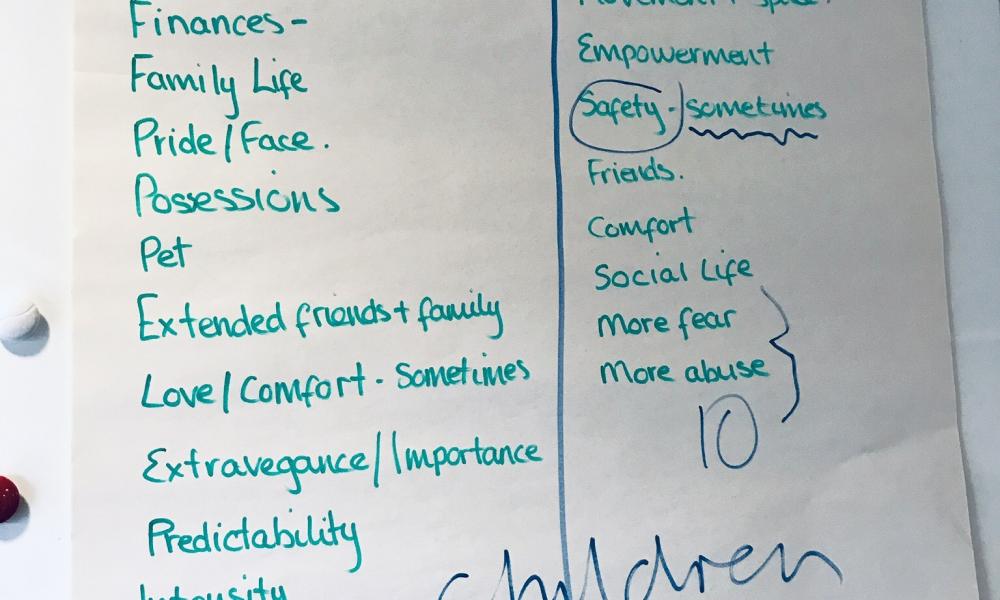 Finances-
Family Life
Pride/Face.
Possessions
Pet
Extended friends + family
Love/Comfort - Sometimes
Extravegance/Importance
Predictability
Intensity
Movement + space.
Empowerment
Safety - sometimes
Friends.
Comfort
Social Life
More fear
More abuse
10
children